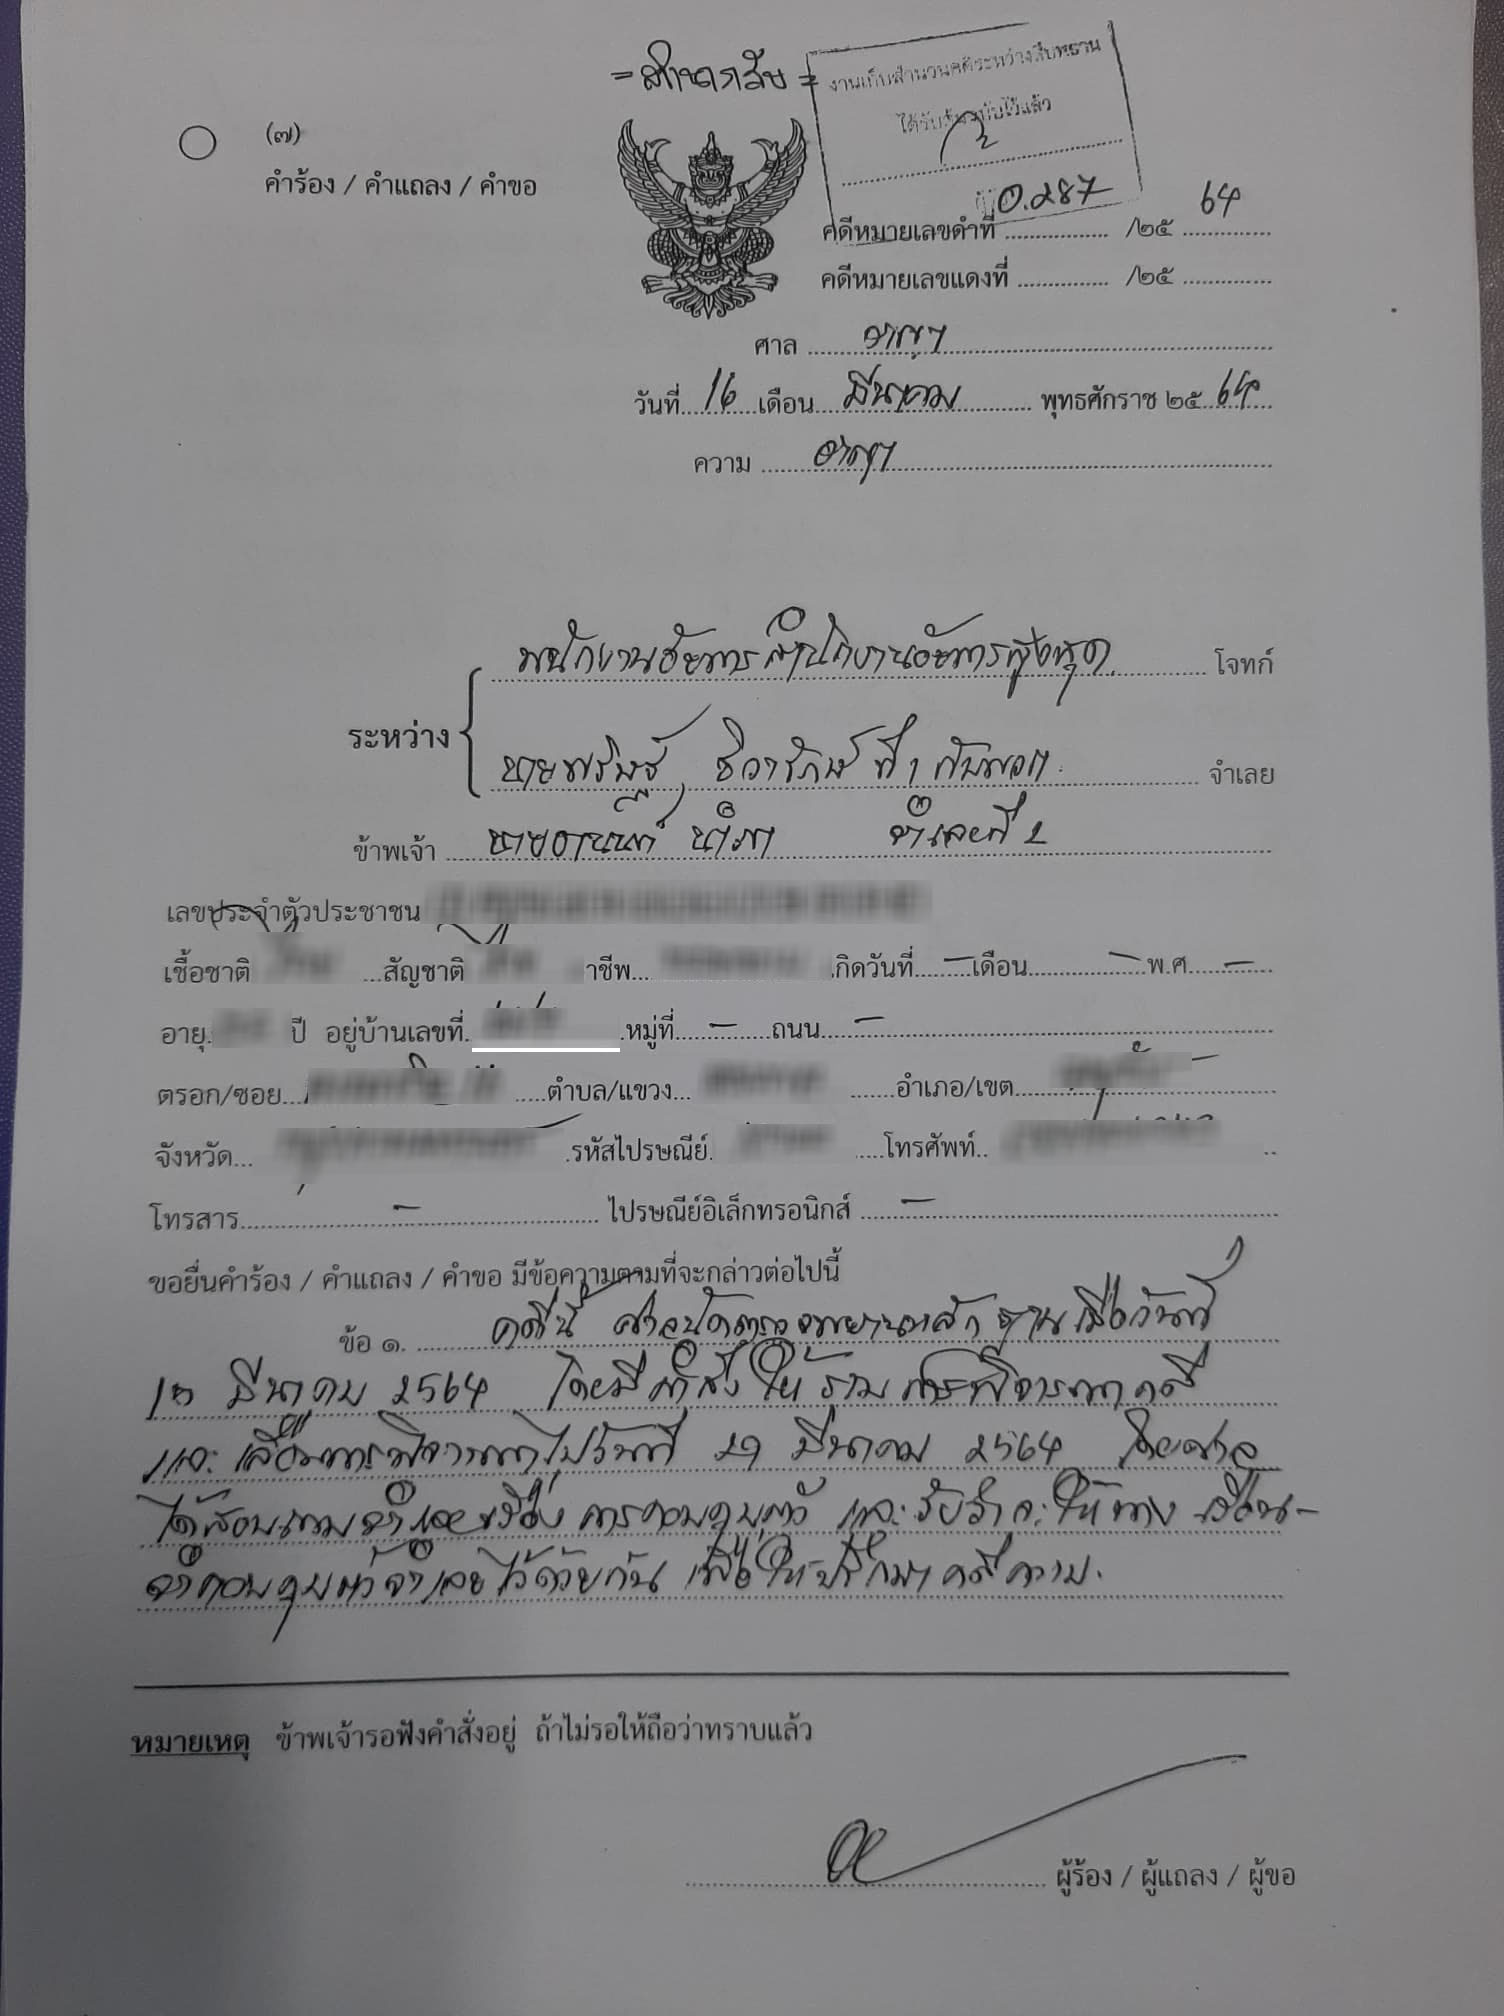 = สำเนาฉบับ =
งานเก็บสำนวนคดีระหว่างสืบพยาน
ได้รับต้นฉบับไว้แล้ว
(๗)
คำร้อง / คำแถลง / คำขอ
คดีหมายเลขดำที่ อ.287 /๒๕ 64
คดีหมายเลขแดงที่ /๒๕
ศาล อาญา
วันที่ 16 เดือน มีนาคม พุทธศักราช ๒๕ 64
ความ อาญา
พนักงานอัยการสำนักงานอัยการสูงสุด โจทก์
ระหว่าง
นายพริษฐ์ ชิวารักษ์ ที่ 1 กับพวก จำเลย
ข้าพเจ้า นายอานนท์ นำภา จำเลยที่ 2
เลขประจำตัวประชาชน
เชื้อชาติ สัญชาติ าชีพ กิดวันที่ - เดือน - พ.ศ. -
อายุ ปี อยู่บ้านเลขที่ หมู่ที่ - ถนน -
ตรอก/ซอย ตำบล/แขวง อำเภอ/เขต
จังหวัด รหัสไปรษณีย์ โทรศัพท์
โทรสาร - ไปรษณีย์อิเล็กทรอนิกส์ -
ขอยื่นคำร้อง / คำแถลง / คำขอ มีข้อความตามที่จะกล่าวต่อไปนี้
ข้อ ๑. คดีนี้ ศาลนัดตรวจพยานหลักฐานเมื่อวันที่
มีนาคม 2564 โดยมีคำสั่งให้รวมการพิจารณาคดี
และเลื่อนการพิจารณาไปวันที่ 29 มีนาคม 2564 โดยศาล
ได้สอบถามจำเลยเรื่องการควบคุมตัว และรับว่าจะให้ทางเรือน-
จำควบคุมตัวจำเลยไว้ด้วยกัน เพื่อให้ปรึกษาคดีความ.
หมายเหตุ ข้าพเจ้ารอฟังคำสั่งอยู่ ถ้าไม่รอให้ถือว่าทราบแล้ว
ผู้ร้อง / ผู้แถลง / ผู้ขอ